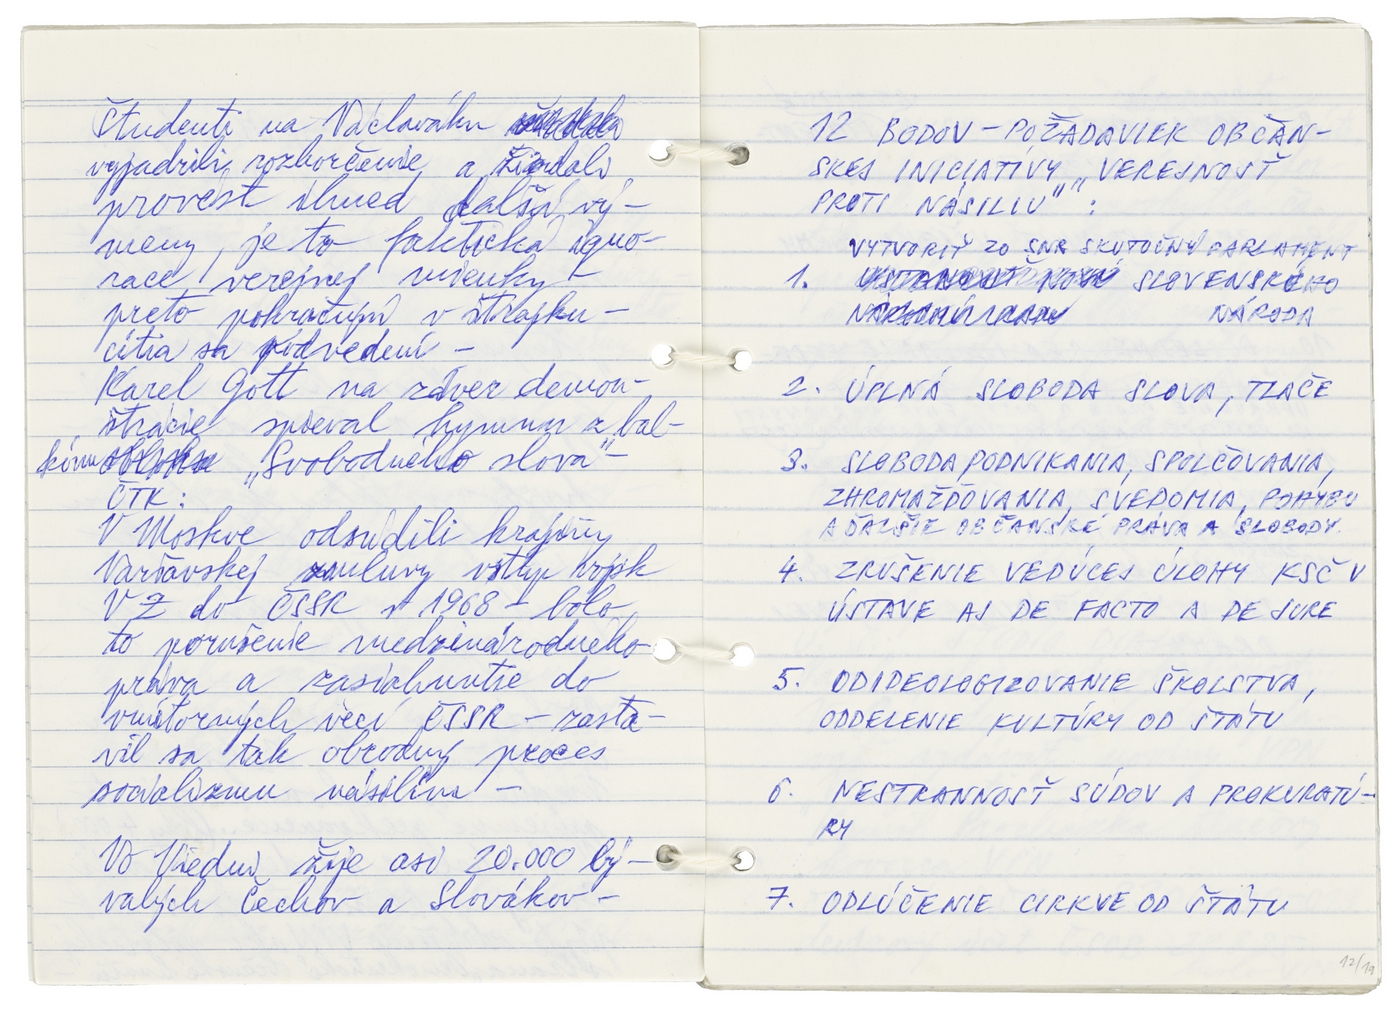 Študenti na Václaváku
vyjadrili rozhorčenie a žiadali
provést ihned další vý-
meny, je to faktická igno-
race verejnej mienky -
preto pokračujú v štrajku -
cítia sa podvedení -
Karel Gott na záver demon-
štrácie spieval hymnu z bal-
kónu „Svobodného slova" -
ČTK:
V Moskve odsúdili krajiny
Varšavskej zmluvy vstup vojsk
VZ do ČSSR v 1968 - bolo
to porušenie medzinárodného
práva a zasiahnutie do
vnútorných vecí ČSSR - zasta-
vil sa tak obrodný proces
socializmu násilím -
Vo Viedni žije asi 20.000 bý-
valých Čechov a Slovákov -
12 BODOV - POŽADAVIEK OBČAN-
SKEJ INICIATÍVY „VEREJNOSŤ
PROTI NÁSILIU" :
VYTVORIŤ ZO SNR SKUTOČNÝ PARLAMENT
1. SLOVENSKÉHO
NÁRODA
2. ÚPLNÁ SLOBODA SLOVA, TLAČE
3. SLOBODA PODNIKANIA, SPOLČOVANIA,
ZHROMAŽĎOVANIA, SVEDOMIA, POHYBU
A ĎALŠIE OBČANSKÉ PRÁVA A SLOBODY.
4. ZRUŠENIE VEDÚCEJ ÚLOHY KSČ V
ÚSTAVE AJ DE FACTO A DE JURE
5. ODIDEOLOGIZOVANIE ŠKOLSTVA,
ODDELENIE KULTÚRY OD ŠTÁTU
6. NESTRANNOSŤ SÚDOV A PROKURATÚ-
RY
7. ODLÚČENIE CIRKVE OD ŠTÁTU
12/19